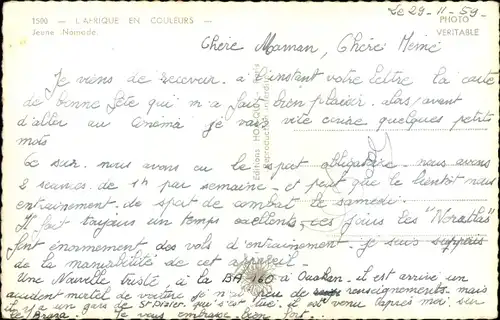 1500 — L'AFRIQUE EN COULEURS —
Jeune Nomade.
PHOTO
VERITABLE
Le 29-11-59
Chère Maman, Chère Mémé
Je viens de recevoir à l'instant votre lettre la carte
de bonne fête qui m'a fait bien plaisir. alors avant
d'aller au cinéma je vais vite écrire quelques petits
mots
Ce sur. nous avons eu le sport obligatoire nous avons
2 seances de 1h par semaine et peut que le bientôt nous
entrainement de sport de combat le samedi.
Il fait toujours un temps excellents, ces jours les "Noratlas"
font énormement des vols d'entrainement. je suis supperis
de la maniabilité de cet appareil
Une Nouvelle triste, à la BA 160 à Ouakan. il est arrivé un
accident mortel de voiture je n'ai de renseignements mais
il y un gars de St Dizier qui s'est tué. il est venu l'après moi sur
Brazza Je vous embrasse bien fort.
Editions
Reproduction